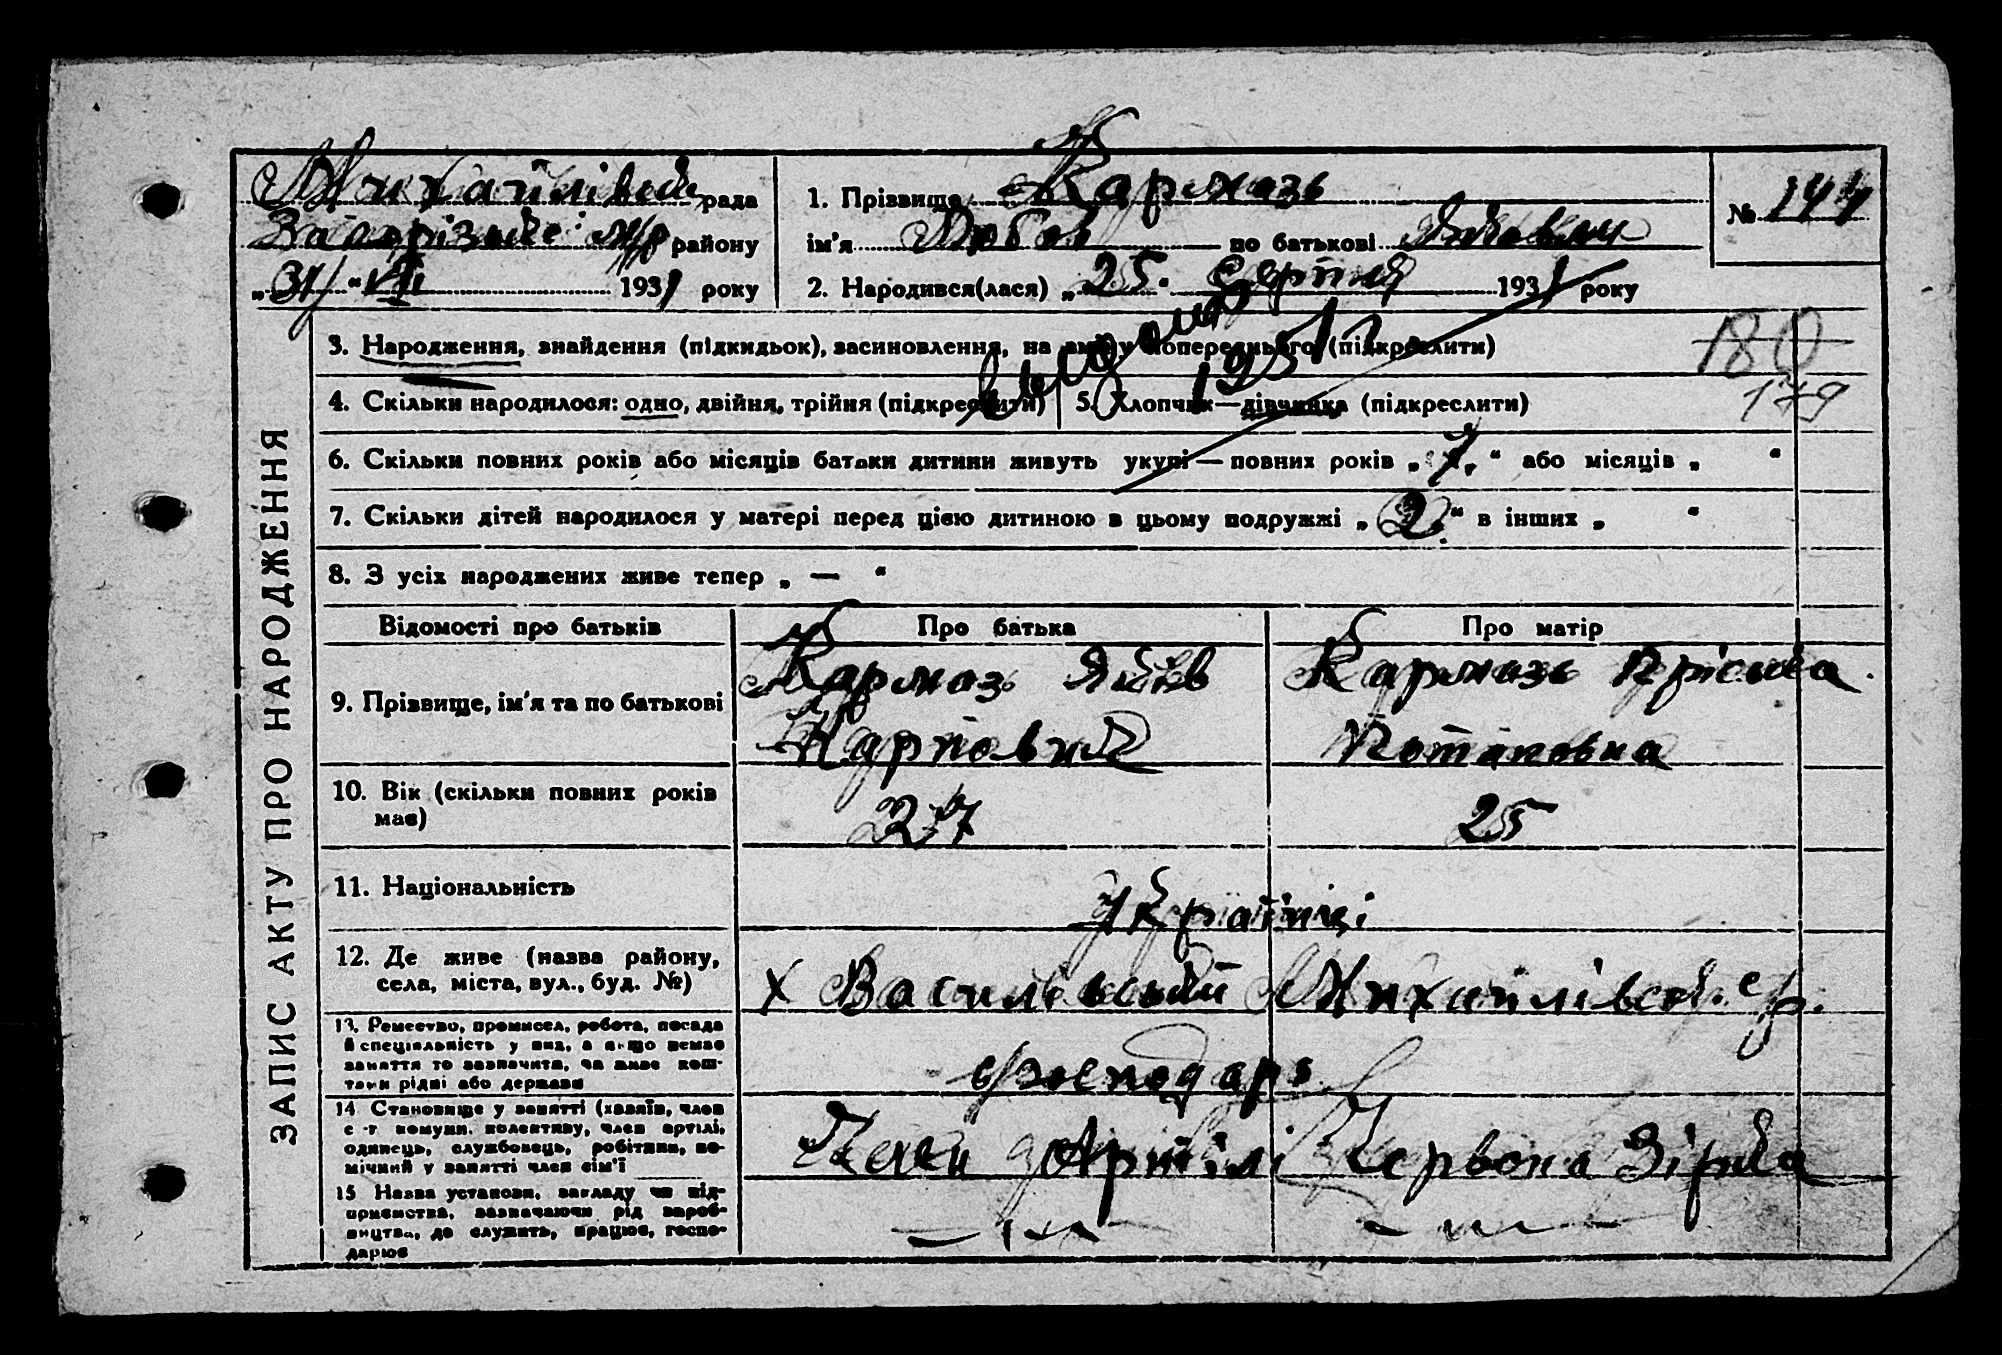 Михайлівськ рада
Запорізьке району
„31“ VIII 1931 року
1. Прізвище Кармазь
ім'я Любов по батькові Яковлив
2. Народився(лася) „25. серпня 1931 року
№ 144
3. Народження, знайдення (підкидьок), засиновлення, на заміну попереднього (підкреслити)
180
4. Скільки народилося: одно, двійня, трійня (підкреслити) 5. Хлопчик—дівчинка (підкреслити)
179
6. Скільки повних років або місяців батьки дитини живуть укупі — повних років „7.“ або місяців „ “
7. Скільки дітей народилося у матері перед цією дитиною в цьому подружжі „2.“ в інших „ “
8. З усіх народжених живе тепер „ — “
ЗАПИС АКТУ ПРО НАРОДЖЕННЯ
Відомості про батьків Про батька Про матір
9. Прізвище, ім'я та по батькові
Кармазь Яків
Карпович
Кармазь Пріська.
Потаповна
10. Вік (скільки повних років
має)
27 25
11. Національність
Українці
12. Де живе (назва району,
села, міста, вул., буд. №)
х Василівський Михайлівськ. с/р.
13. Ремество, промисел, робота, посада
й спеціяльність у них, а якщо немає
заняття то зазначити, чи живе кош-
тами рідні або держави
господарь
14 Становище у занятті (хазяїн, член
с.-г. комуни, колективу, член артілі,
одинець, службовець, робітник, по-
мічний у занятті член сім'ї
Член Артілі Червона Зірка
15 Назва установи, закладу чи під-
приємства, зазначаючи рід вироб-
ництва, де служить, працює, госпо-
дарює
— „ — — „ —